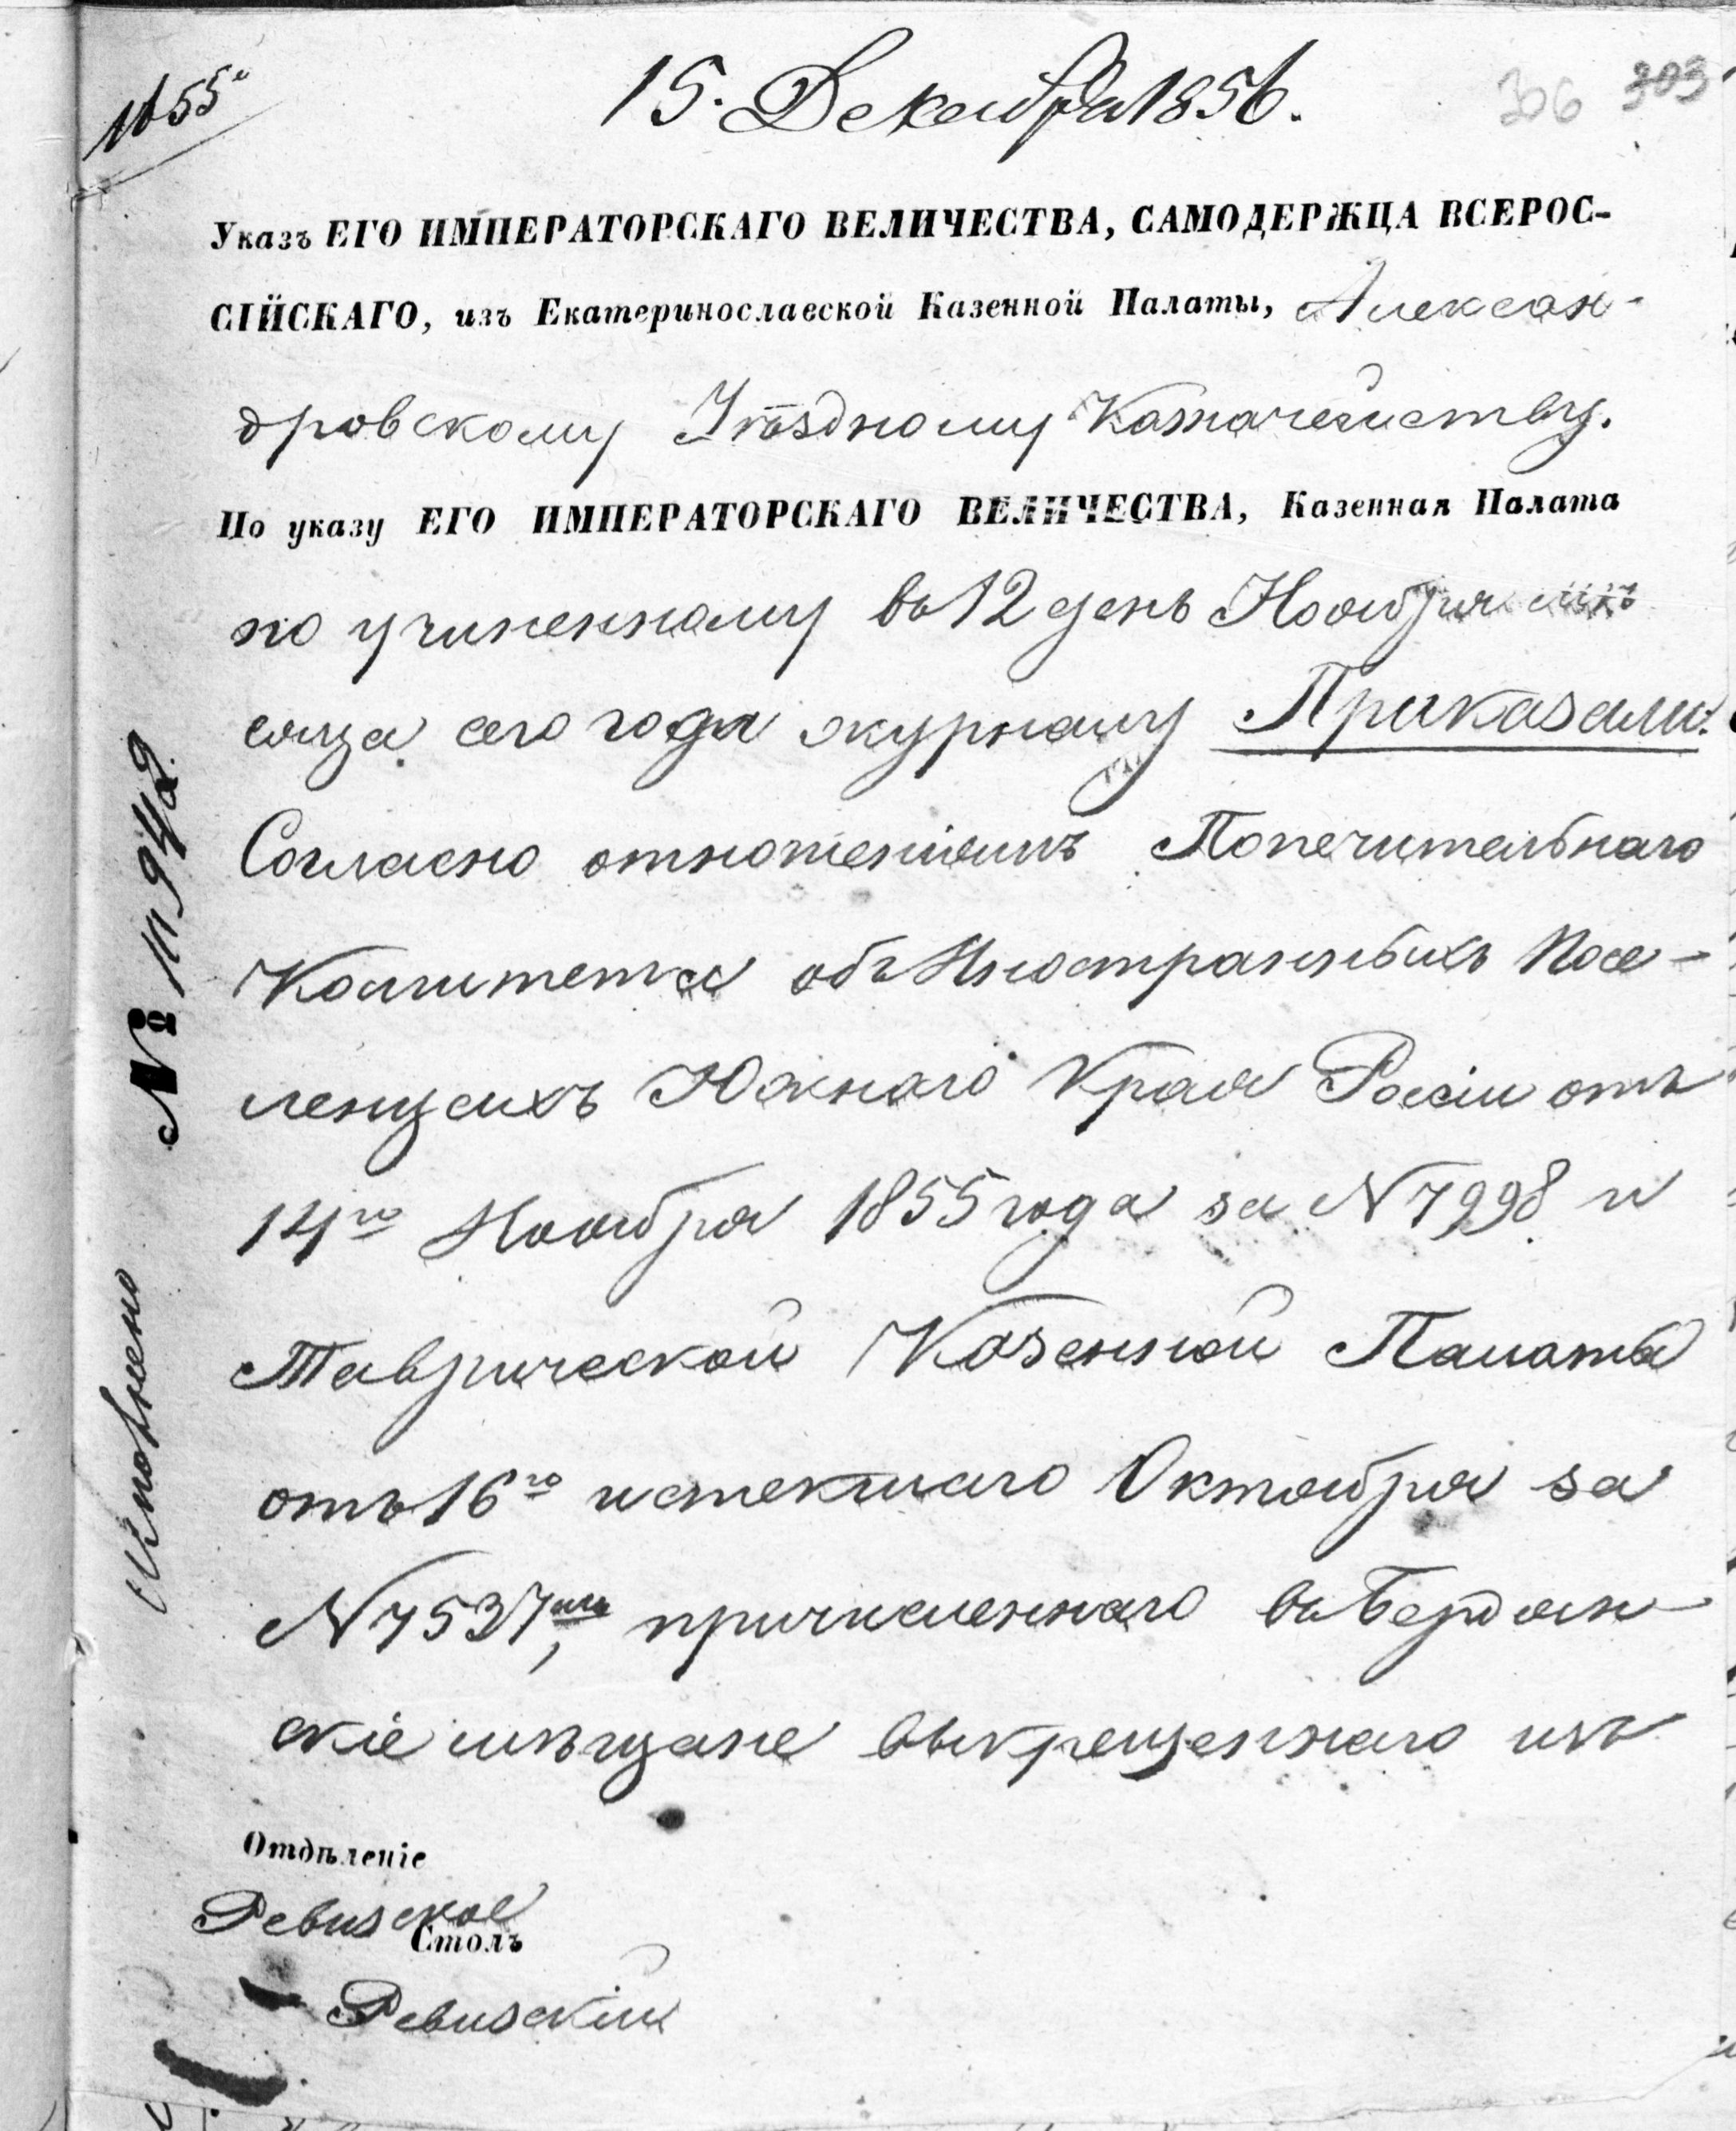 1655
15. Декабря 1856.
306 303
Указъ ЕГО ИМПЕРАТОРСКАГО ВЕЛИЧЕСТВА, САМОДЕРЖЦА ВСЕРОС-
СІЙСКАГО, изъ Екатеринославской Казенной Палаты, Алексан-
дровскому Уѣздному Казначейству.
По указу ЕГО ИМПЕРАТОРСКАГО ВЕЛИЧЕСТВА, Казенная Палата
по учиненному въ 12 день Ноября мѣ
сяца сего года журналу Приказали:
Согласно отношеніямъ Попечительнаго
Комитета объ Иностранныхъ Посе-
ленцахъ Южнаго Края Россіи отъ
14го Ноября 1855 года за N 7998 и
Таврической Казенной Палаты
отъ 16го истекшаго Октября за
N 7537мъ, причисленнаго въ Бердян-
скіе мѣщане выкрещеннаго изъ
№ 11942
Исполнено
Отдѣленіе
Ревизское
Столъ
Ревизскій